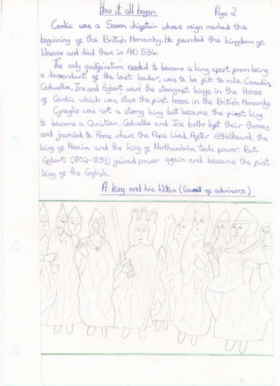 How it all began Page 2
Cerdic was a Saxon chieftan whose reign marked the
beginning of the British Monarchy. He founded the kingdom of
Wessex and died there in AD 534.
The only qualification needed to become a king apart from being
a descendant of the last leader, was to be fit to rule. Ceawlin,
Cadwalla, Ine and Egbert were the strongest kings in the House
of Cerdic which was also the first house in the British Monarchy.
was not a strong king but became the first king
to become a Christian. Cadwalla and Ine both left their thrones
and journied to Rome where they died. After Ethelheard, the
king of Mercia and the king of Northumbria took power. But
Egbert (802-839) gained power again and became the first
king of the English.
A king and his Witan (Council of advisors)